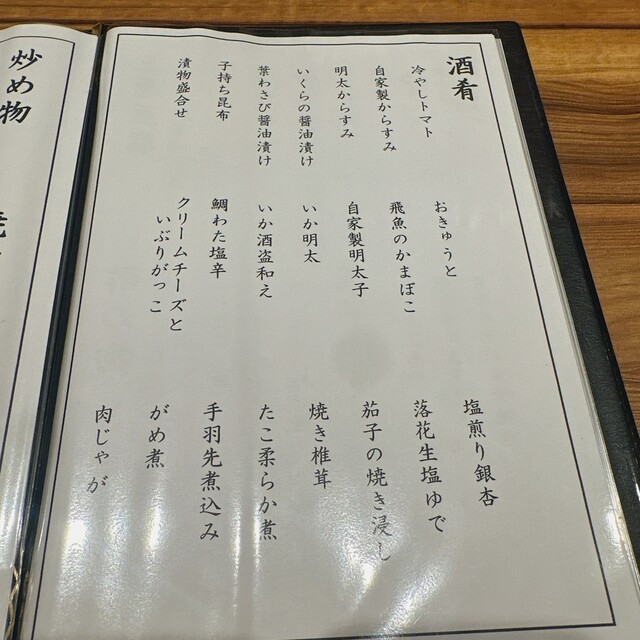 酒肴
冷やしトマト
自家製からすみ
明太からすみ
いくらの醤油漬け
葉わさび醤油漬け
子持ち昆布
漬物盛合せ
おきゅうと
飛魚のかまぼこ
自家製明太子
いか明太
いか酒盗和え
鯛わた塩辛
クリームチーズと
いぶりがっこ
塩煎り銀杏
落花生塩ゆで
茄子の焼き浸し
焼き椎茸
たこ柔らか煮
手羽先煮込み
がめ煮
肉じゃが
炒め物